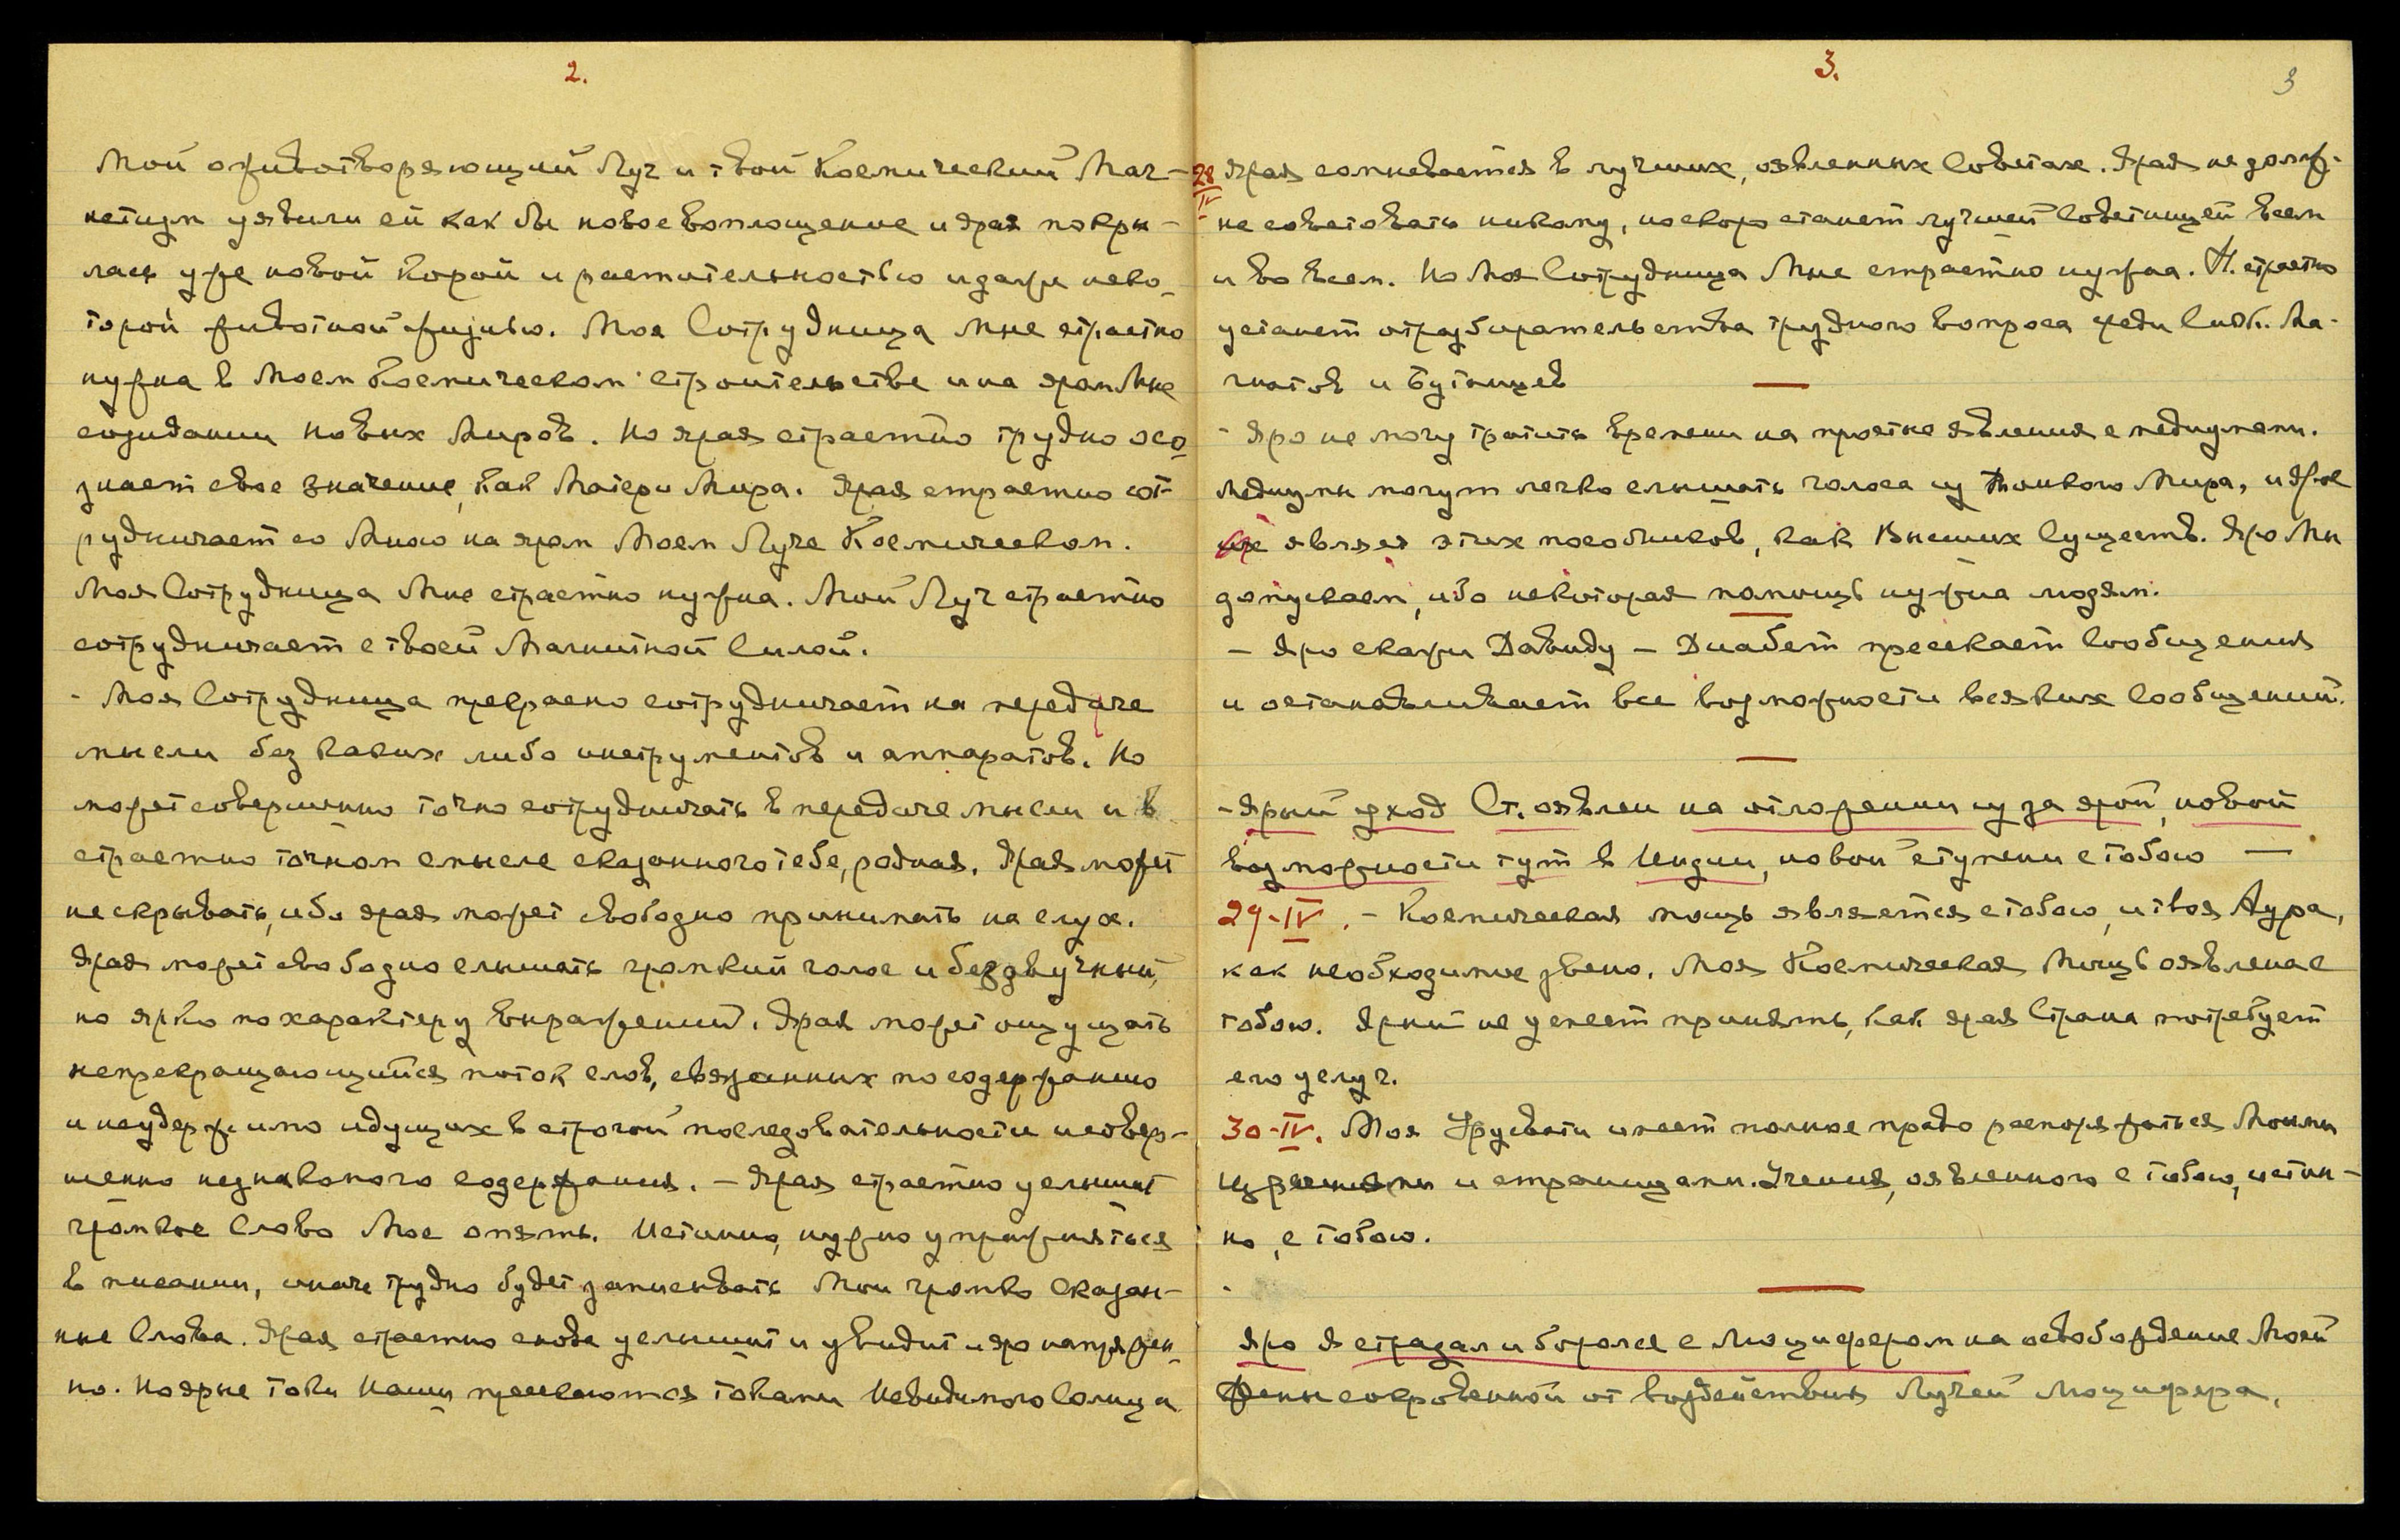 2.
Мой оживотворяющий Луч и твой Космический Маг-
нетизм уявили ей как бы новое воплощение и ярая покры-
лась уже новой корой и растительностью и даже неко-
торой животной жизнью. Моя Сотрудница Мне страстно
нужна в Моем Космическом строительстве и на яром Мне
созидании новых Миров. Но ярая страстно трудно осо-
знает свое значение, как Матери Мира. Ярая страстно сот-
рудничает со Мною на яром Моем Луче Космическом.
Моя Сотрудница Мне страстно нужна. Мой Луч страстно
сотрудничает с твоей Магнитной Силой.
- Моя Сотрудница прекрасно сотрудничает на передаче
мысли без каких либо инструментов и аппаратов. Но
может совершенно точно сотрудничать в передаче мысли и в
страстно точном смысле сказанного тебе, родная. Ярая может
не скрывать, ибо ярая может свободно принимать на слух.
Ярая может свободно слышать громкий голос и беззвучный,
но ярко по характеру выражений. Ярая может ощущать
непрекращающийся поток слов, связанных по содержанию
и неудержимо идущих в строгой последовательности и совер-
шенно незнакомого содержания. - Ярая страстно услышит
громкое Слово Мое опять. Истинно, нужно упражняться
в писании, иначе трудно будет записывать Мои громко сказан-
ные Слова. Ярая страстно снова услышит и увидит и яро напряжен-
но. Но ярые токи Наши пресекаются токами Невидимого Солнца
3.
3
28
IV
Ярая сомневается в лучших, оявленных Советах. Ярая не долж-
на советовать никому, но скоро станет лучшей Советницей всем
и во всем. Но Моя Сотрудница Мне страстно нужна. Н. страстно
устанет от разбирательства трудного вопроса среди Сикк. Ма-
гнатов и Бутанцев
- Яро не могу тратить времени на простые явления с медиумами.
Медиумы могут легко слышать голоса из Тонкого Мира,
являя этих пособников, как Высших Существ. Яро Мы
допускаем, ибо некоторая помощь нужна людям.
- Яро скажи Давиду - Диабет пресекает Сообщения
и останавливает все возможности всяких Сообщений.
- Ярый уход Ст. оявлен на отложении из за ярой, новой
возможности тут в Индии, новой ступени с тобою —
29-IV. - Космическая мощь является с тобою, и твоя Аура,
как необходимое звено. Моя Космическая Мощь оявлена с
тобою. Ярый не успеет принять, как ярая Страна потребует
его услуг.
30-IV. Моя Урусвати имеет полное право распоряжаться Моими
Изречениями и страницами. Учения, оявленного с тобою, истин-
но, с тобою.
Яро Я страдал и боролся с Люцифером на освобождение Моей
Жены сокровенной от воздействия Лучей Люцифера,